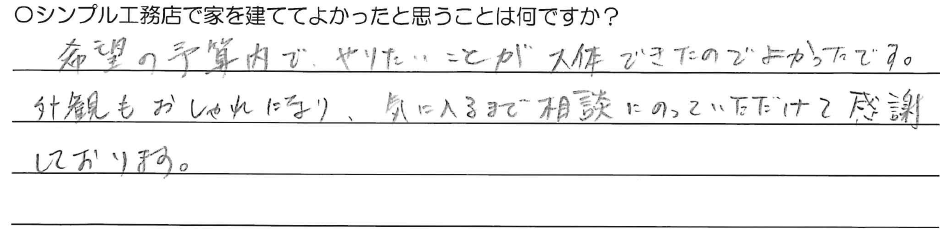 ○シンプル工務店で家を建ててよかったと思うことは何ですか？
希望の予算内で、やりたいことが大体できたのでよかったです。
外観もおしゃれになり、気に入るまで相談にのっていただけて感謝
しております。